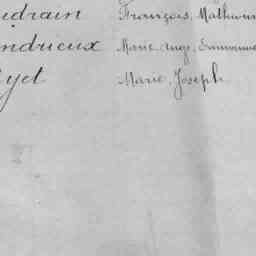 udrain François, Mathurin
ndrieux Marie Ange, Emmanuel
yet Marie, Joseph